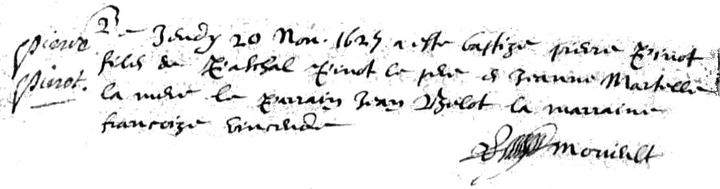 Pierre
Pinot.
Le Jeudy 20 Nov. 1625 a este baptize pierre Pinot
filz de Paschal Pinot le pere et Jeanne Martelle
la mere le parrain Jean Belot la marraine
francoize